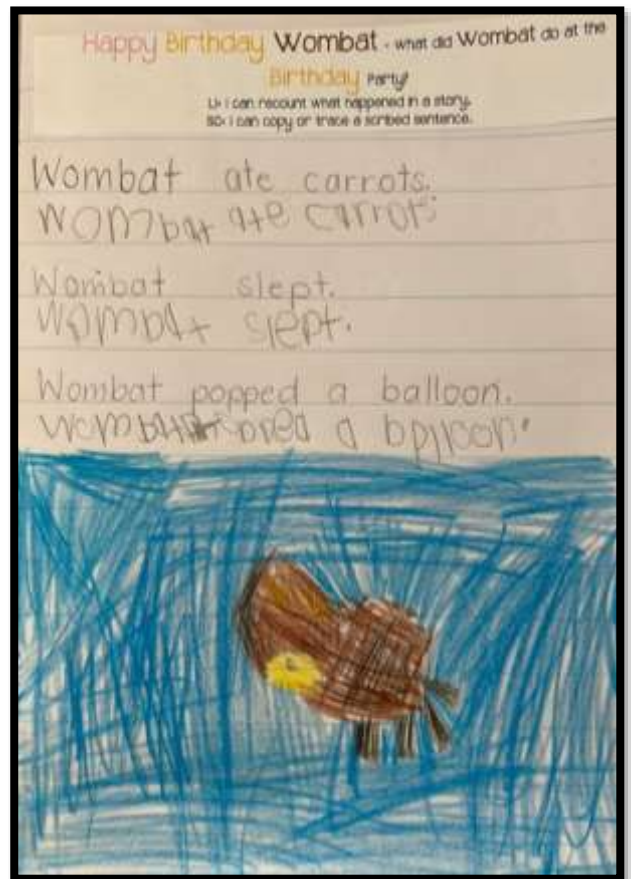 Happy Birthday Wombat - what did Wombat do at the
Birthday Party?
LI: I can recount what happened in a story.
SC: I can copy or trace a scribed sentence.
Wombat ate carrots.
Wombat ate carrots
Wombat slept.
Wombat slept.
Wombat popped a balloon.
a